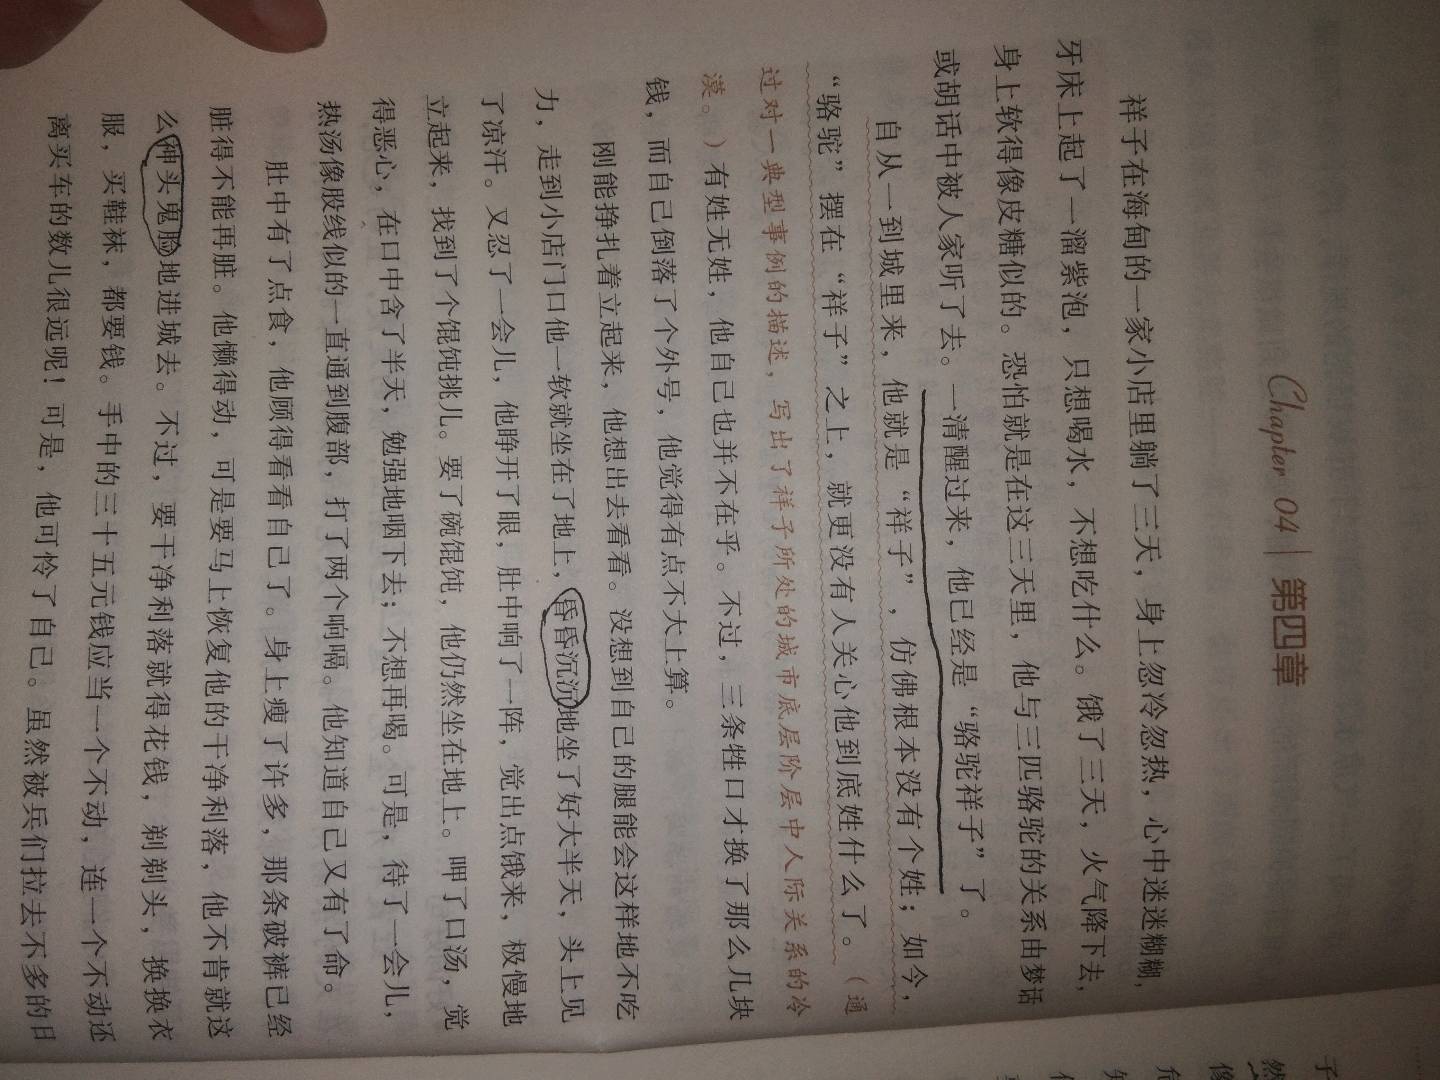 Chapter 04 | 第四章
祥子在海甸的一家小店里躺了三天，身上忽冷忽热，心中迷迷糊糊，
牙床上起了一溜紫泡，只想喝水，不想吃什么。饿了三天，火气降下去，
身上软得像皮糖似的。恐怕就是在这三天里，他与三匹骆驼的关系由梦话
或胡话中被人家听了去。一清醒过来，他已经是“骆驼祥子”了。
自从一到城里来，他就是“祥子”，仿佛根本没有个姓；如今，
“骆驼”摆在“祥子”之上，就更没有人关心他到底姓什么了。（通
过对一典型事例的描述，写出了祥子所处的城市底层阶层中人际关系的冷
漠。）有姓无姓，他自己也并不在乎。不过，三条牲口才换了那么几块
钱，而自己倒落了个外号，他觉得有点不大上算。
刚能挣扎着立起来，他想出去看看。没想到自己的腿能会这样地不吃
力，走到小店门口他一软就坐在了地上，昏昏沉沉地坐了好大半天，头上见
了凉汗。又忍了一会儿，他睁开了眼，肚中响了一阵，觉出点饿来，极慢地
立起来，找到了个馄饨挑儿。要了碗馄饨，他仍然坐在地上。呷了口汤，觉
得恶心，在口中含了半天，勉强地咽下去；不想再喝。可是，待了一会儿，
热汤像股线似的一直通到腹部，打了两个响嗝。他知道自己又有了命。
肚中有了点食，他顾得看看自己了。身上瘦了许多，那条破裤已经
脏得不能再脏。他懒得动，可是要马上恢复他的干净利落，他不肯就这
么神头鬼脸地进城去。不过，要干净利落就得花钱，剃剃头，换换衣
服，买鞋袜，都要钱。手中的三十五元钱应当一个不动，连一个不动还
离买车的数儿很远呢！可是，他可怜了自己。虽然被兵们拉去不多的日
子
然
像